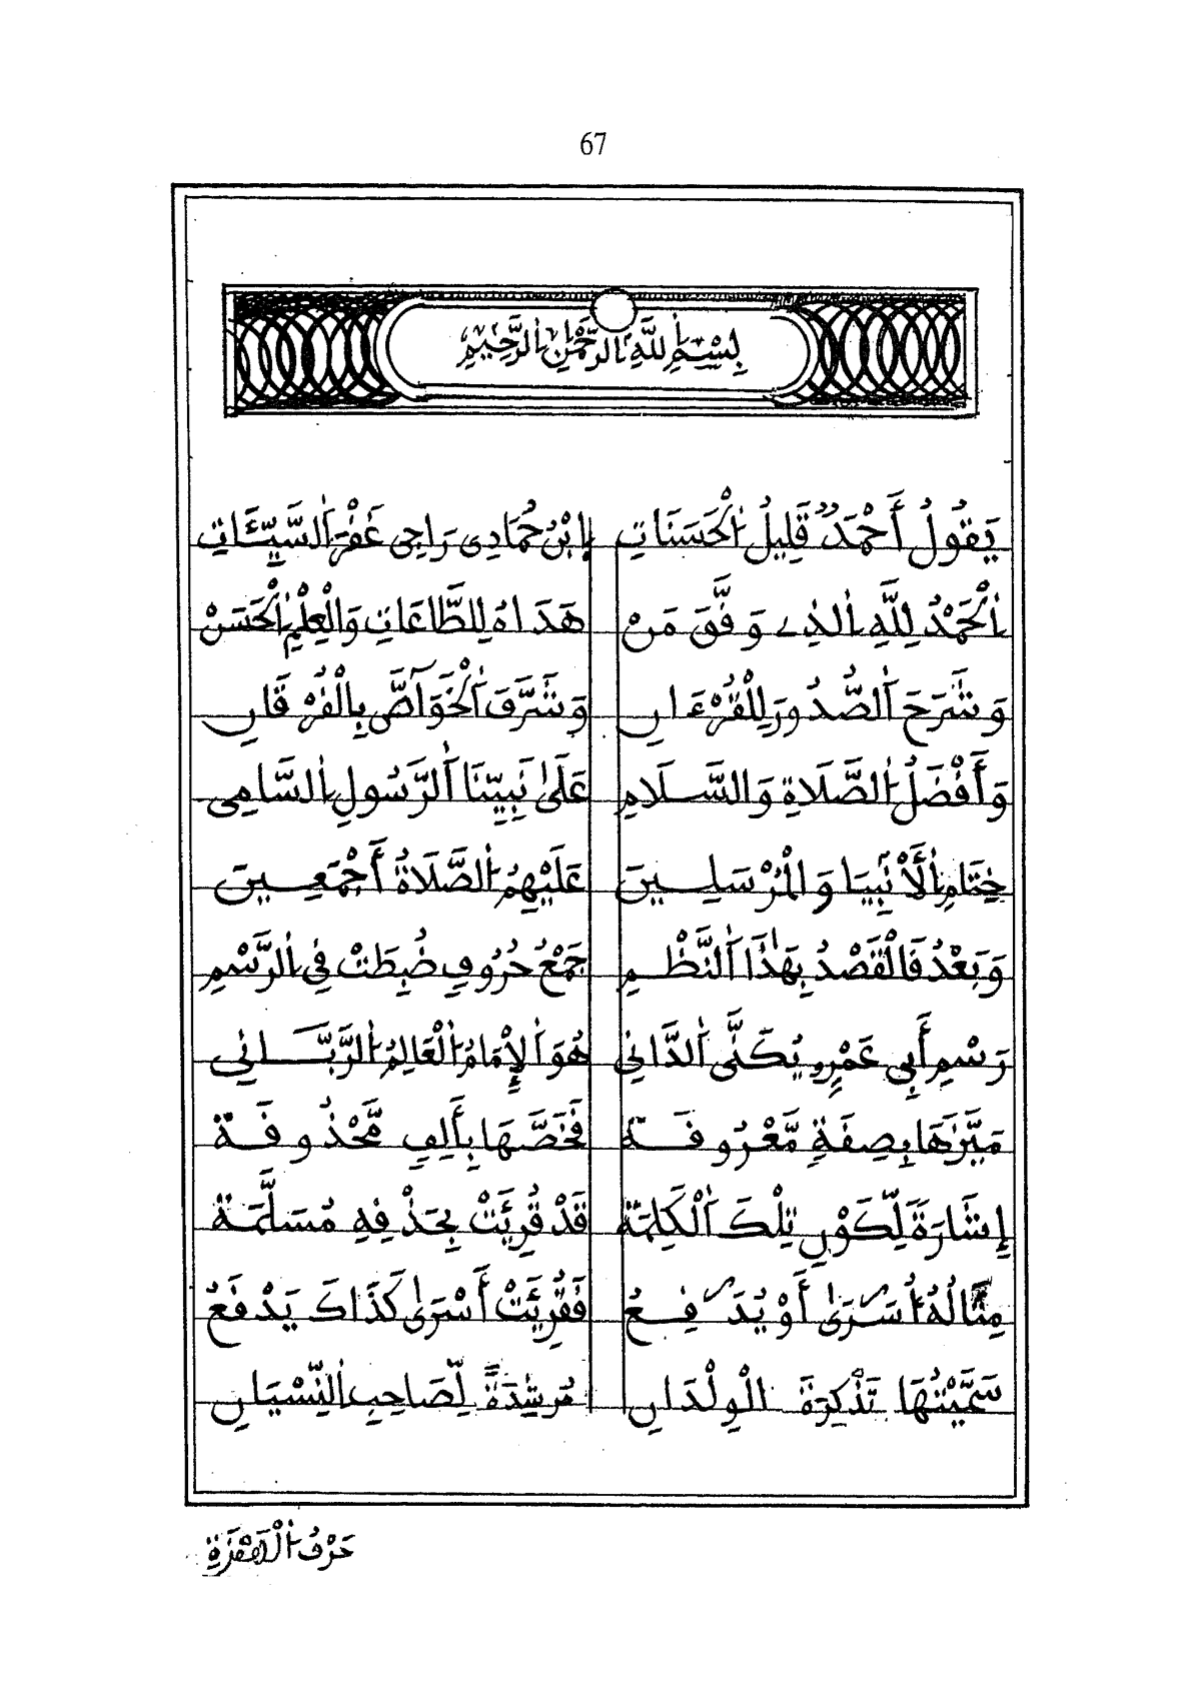 67
بِسْمِ اللَّهِ الرَّحْمَٰنِ الرَّحِيمِ
يَقُولُ أَحْمَدُ قَلِيلُ الْحَسَنَاتِ إِبْنُ حُمَادِى رَاجِى غَفْرَ السَّيِّئَاتِ
الْحَمْدُ لِلَّهِ الَّذِى وَفَّقَ مَنْ هَدَاهُ لِلطَّاعَاتِ وَالْعِلْمِ الْحَسَنْ
وَشَرَحَ الصُّدُورَ لِلْقُرْءَانِ وَشَرَّفَ الْخَوَآصَّ بِالْفُرْقَانِ
وَأَفْضَلُ الصَّلَاةِ وَالسَّلَامِ عَلَىٰ نَبِيِّنَا الرَّسُولِ السَّامِى
خِتَامِ الْأَنْبِيَا وَالْمُرْسَلِينَ عَلَيْهِمُ الصَّلَاةُ أَجْمَعِينَ
وَبَعْدُ فَالْقَصْدُ بِهَٰذَا النَّظْمِ جَمْعُ حُرُوفٍ ضُبِطَتْ فِى الرَّسْمِ
رَسْمِ أَبِى عَمْرٍو يُكَنَّى الدَّانِى هُوَ الْإِمَامُ الْعَالِمُ الرَّبَّانِى
مَيَّزَهَا بِصِفَةٍ مَّعْرُوفَةْ فَخَصَّهَا بِأَلِفٍ مَّحْذُوفَةْ
إِشَارَةً لِّكَوْنِ تِلْكَ الْكَلِمَةْ قَدْ قُرِئَتْ بِحَذْفِهِ مُسَلَّمَةْ
مِثَالُهُ أُسَٰرَىٰ أَوْ يُدَٰفِعُ فَقُرِئَتْ أَسْرَىٰ كَذَاكَ يَدْفَعُ
سَمَّيْتُهَا تَذْكِرَةَ الْوِلْدَانِ مُرْشِدَةً لِّصَاحِبِ النِّسْيَانِ
حَرْفُ الْهَمْزَةِ